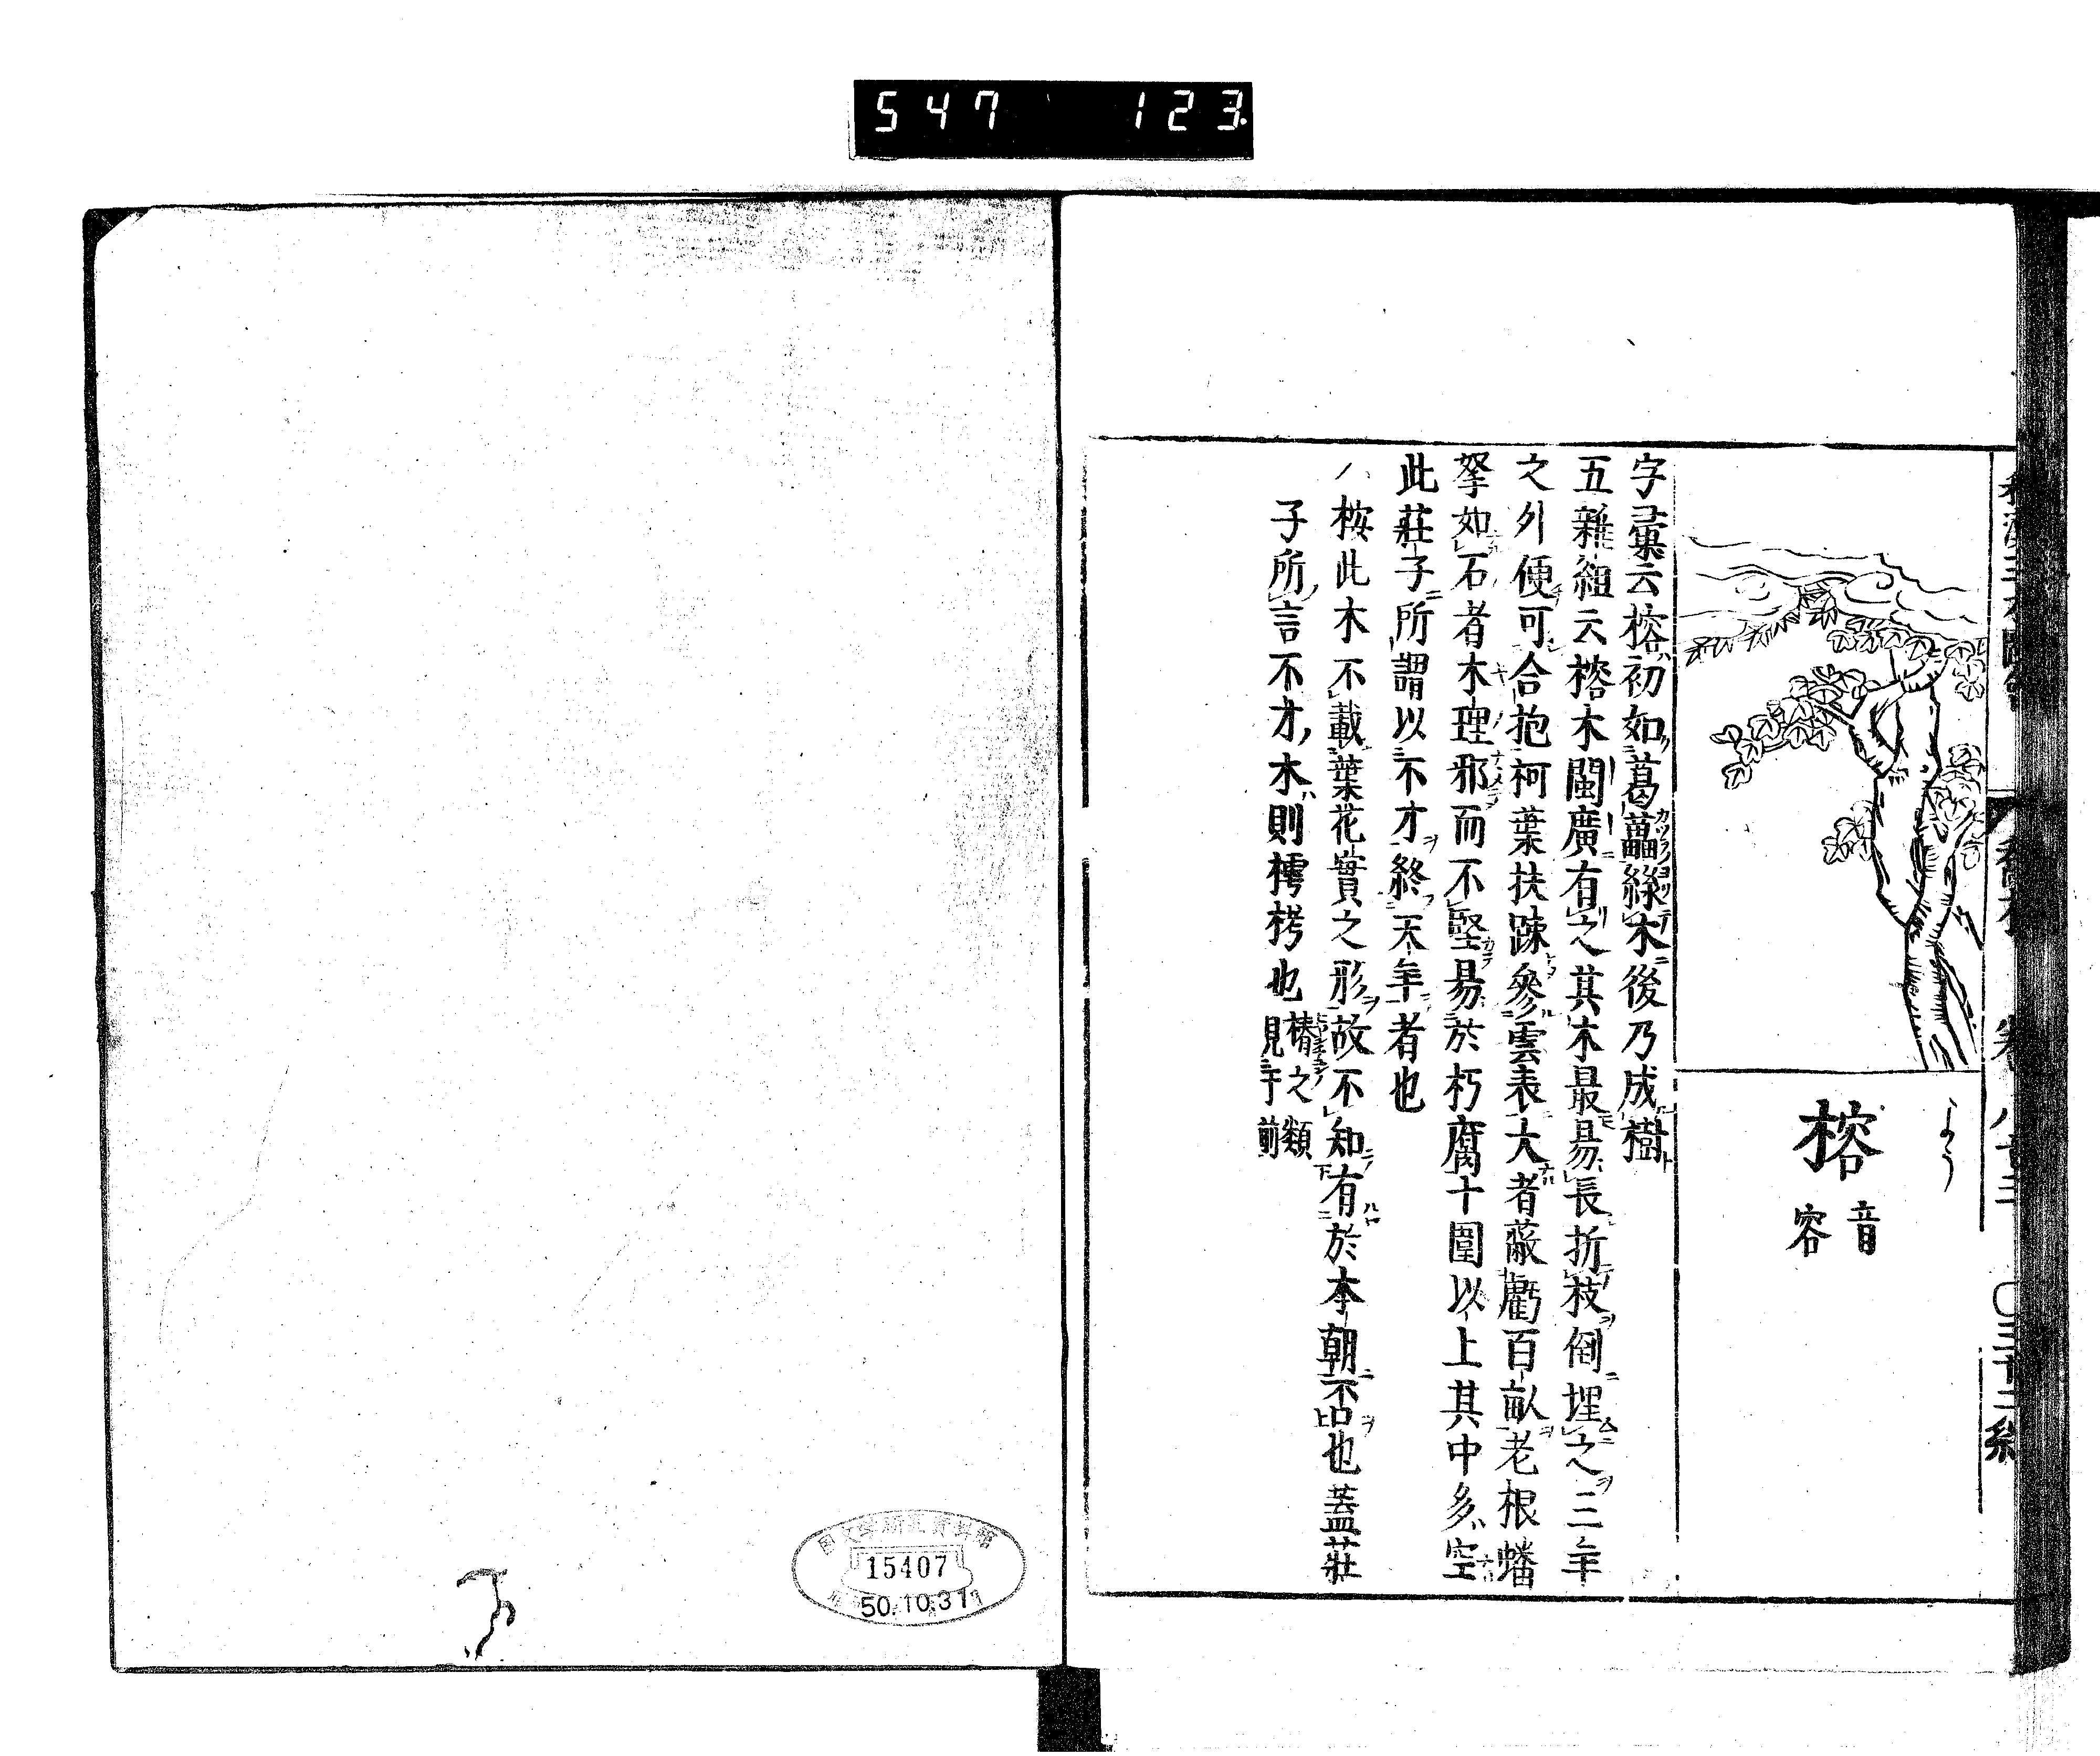 547 123
よう
榕 音容
字彙云榕初如葛藟緣木後乃成樹
五雜組云榕木閩廣有之其木最昜長折枝倒埋之三年
之外便可合抱柯葉扶疎參雲表大者蔽虧百畝老根蟠
拏如石者木理邪而不堅昜於朽腐十圍以上其中多空
此莊子所謂以不才終天年者也
按此木不載葉花實之形故不知有於本朝否也蓋莊
子所言不才木則樗栲也椿之類見于前
15407
50.10.31